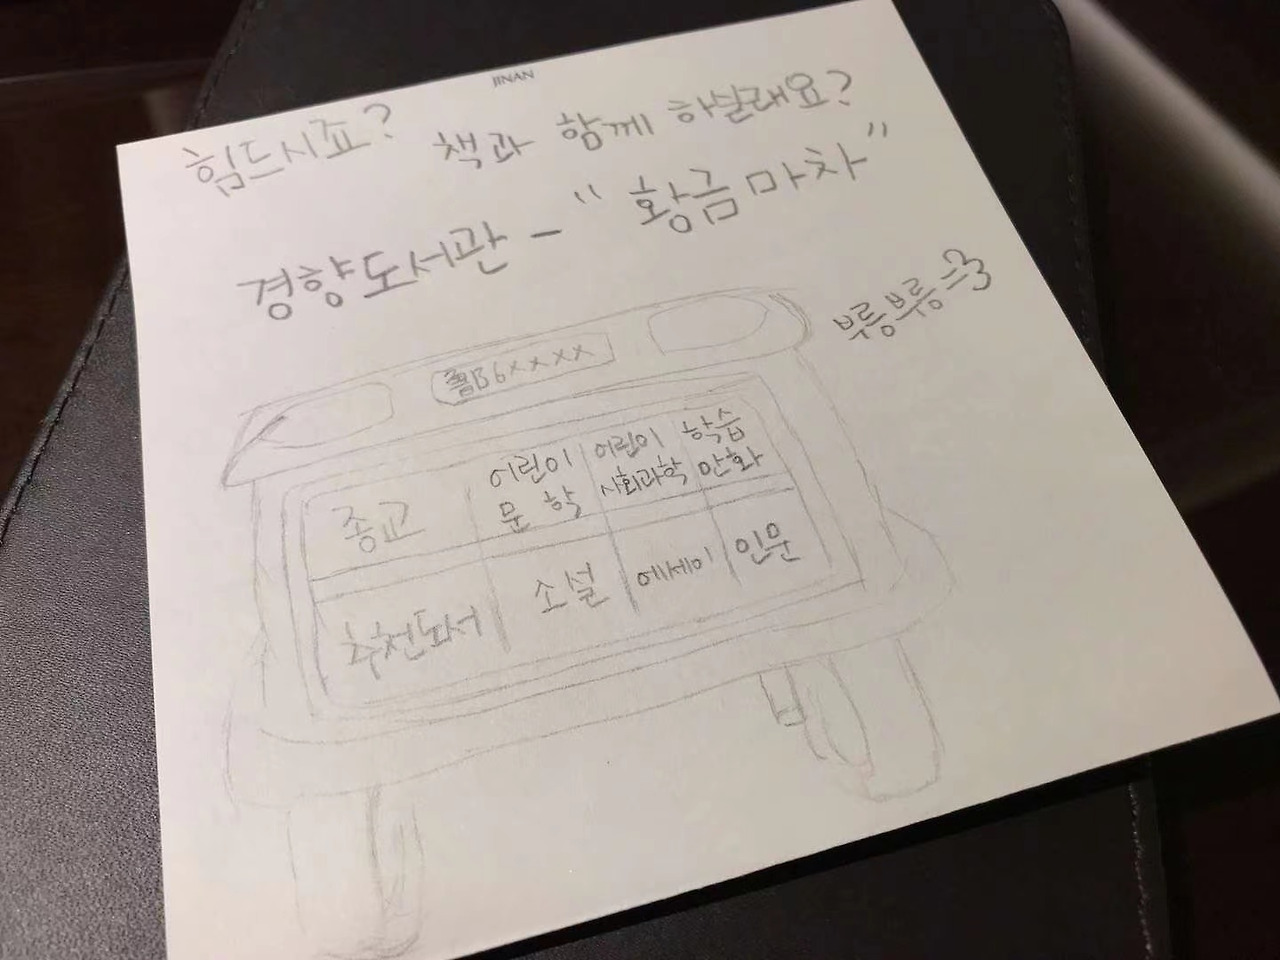 JINAN
힘드시죠? 책과 함께 하실래요?
경향도서관 - "황금마차"
부릉부릉=3
B6xxxx
종교 어린이 문학 어린이 사회과학 학습 만화
추천도서 소설 에세이 인문